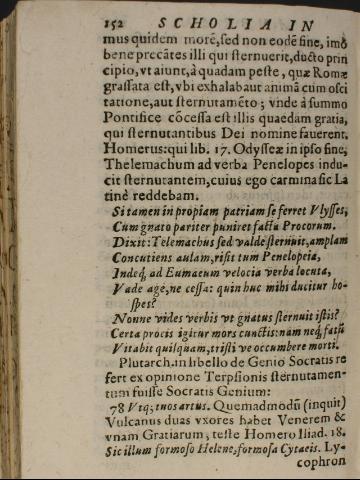 152 SCHOLIA IN
mus quidem morē, sed non eodē fine, imò
bene precātes illi qui sternuerit, ducto prin
cipio, vt aiunt, à quadam peste, quæ Romæ
grassata est, vbi exhalabaut animā cum osci
tatione, aut sternutamēto; vnde à summo
Pontifice cōcessa est illis quædam gratia,
qui sternutantibus Dei nomine fauerent.
Homerus: qui lib. 17. Odysseæ in ipso fine,
Thelemachum ad verba Penelopes indu-
cit sternutantem, cuius ego carmina sic La
tinè reddebam.
Si tamen in propiam patriam se ferret Vlysses,
Cum gnato pariter puniret factū Procorum.
Dixit: Telemachus sed valde sternuit, amplam
Concutiens aulam, risit tum Penelopeia,
Indeq́, ad Eumaeum velocia verba locuta,
Vade age, ne cessa: quin huc mihi ducitur ho-
spes?
Nonne vides verbis vt gnatus sternuit istis?
Certa procis igitur mors cunctis: nam neq́, fatū
Vitabit quisquam, tristi ve occumbere morti.
Plutarch. in libello de Genio Socratis re
fert ex opinione Terpsionis sternutamen-
tum fuisse Socratis Genium:
78 Vtq́; tuos artus. Quemadmodū (inquit)
Vulcanus duas vxores habet Venerem &
vnam Gratiarum, teste Homero Iliad. 18.
Sic illum formoso Helene, formosa Cytaeis. Ly-
cophron